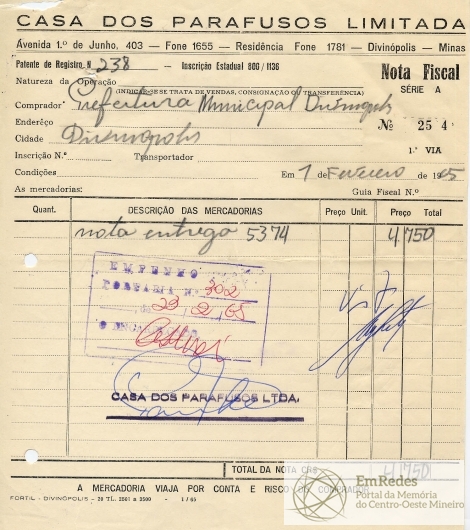 CASA DOS PARAFUSOS LIMITADA
Avenida 1.º de Junho, 403 — Fone 1655 — Residência Fone 1781 — Divinópolis — Minas
Patente de Registro N 238 - Inscrição Estadual 806/1136
Nota Fiscal
Natureza da Operação
(INDICAR SE TRATA DE VENDAS, CONSIGNAÇÃO OU TRANSFERÊNCIA)
SÉRIE A
Comprador Prefeitura Municipal Divinopolis
Enderêço
No 25 4
Cidade Divinopolis
1.ª VIA
Inscrição N.º Transportador
Condições Em 1 de Fevereiro de 1965
As mercadorias: Guia Fiscal N.º
Quant. DESCRIÇÃO DAS MERCADORIAS Preço Unit. Preço Total
nota entrega 5374 4.750
EMPENHO
PORTARIA N. 302
23/2/65
CASA DOS PARAFUSOS LTDA.
TOTAL DA NOTA CR$ 4.750
A MERCADORIA VIAJA POR CONTA E RISCO DO COMPRADOR
FORTIL - DIVINÓPOLIS - 20 TL. 2501 a 3500 - 1/65
EmRedes
Portal da Memória
do Centro-Oeste Mineiro